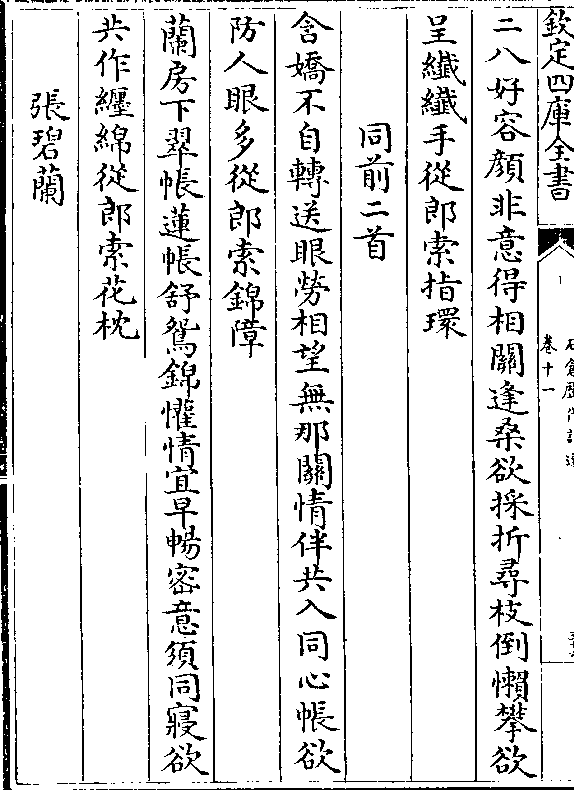 欽定四庫全書
卷十一
二八好容顔非意得相關逢桑欲採折尋枝倒懶攀欲
呈纖纖手從郎索指環
同前二首
含嬌不自轉送眼勞相望無那關情伴共入同心帳欲
防人眼多從郎索錦障
蘭房下翠帳蓮帳舒鴛錦懽情宜早暢密意須同寢欲
共作纒綿從郎索花枕
張碧蘭